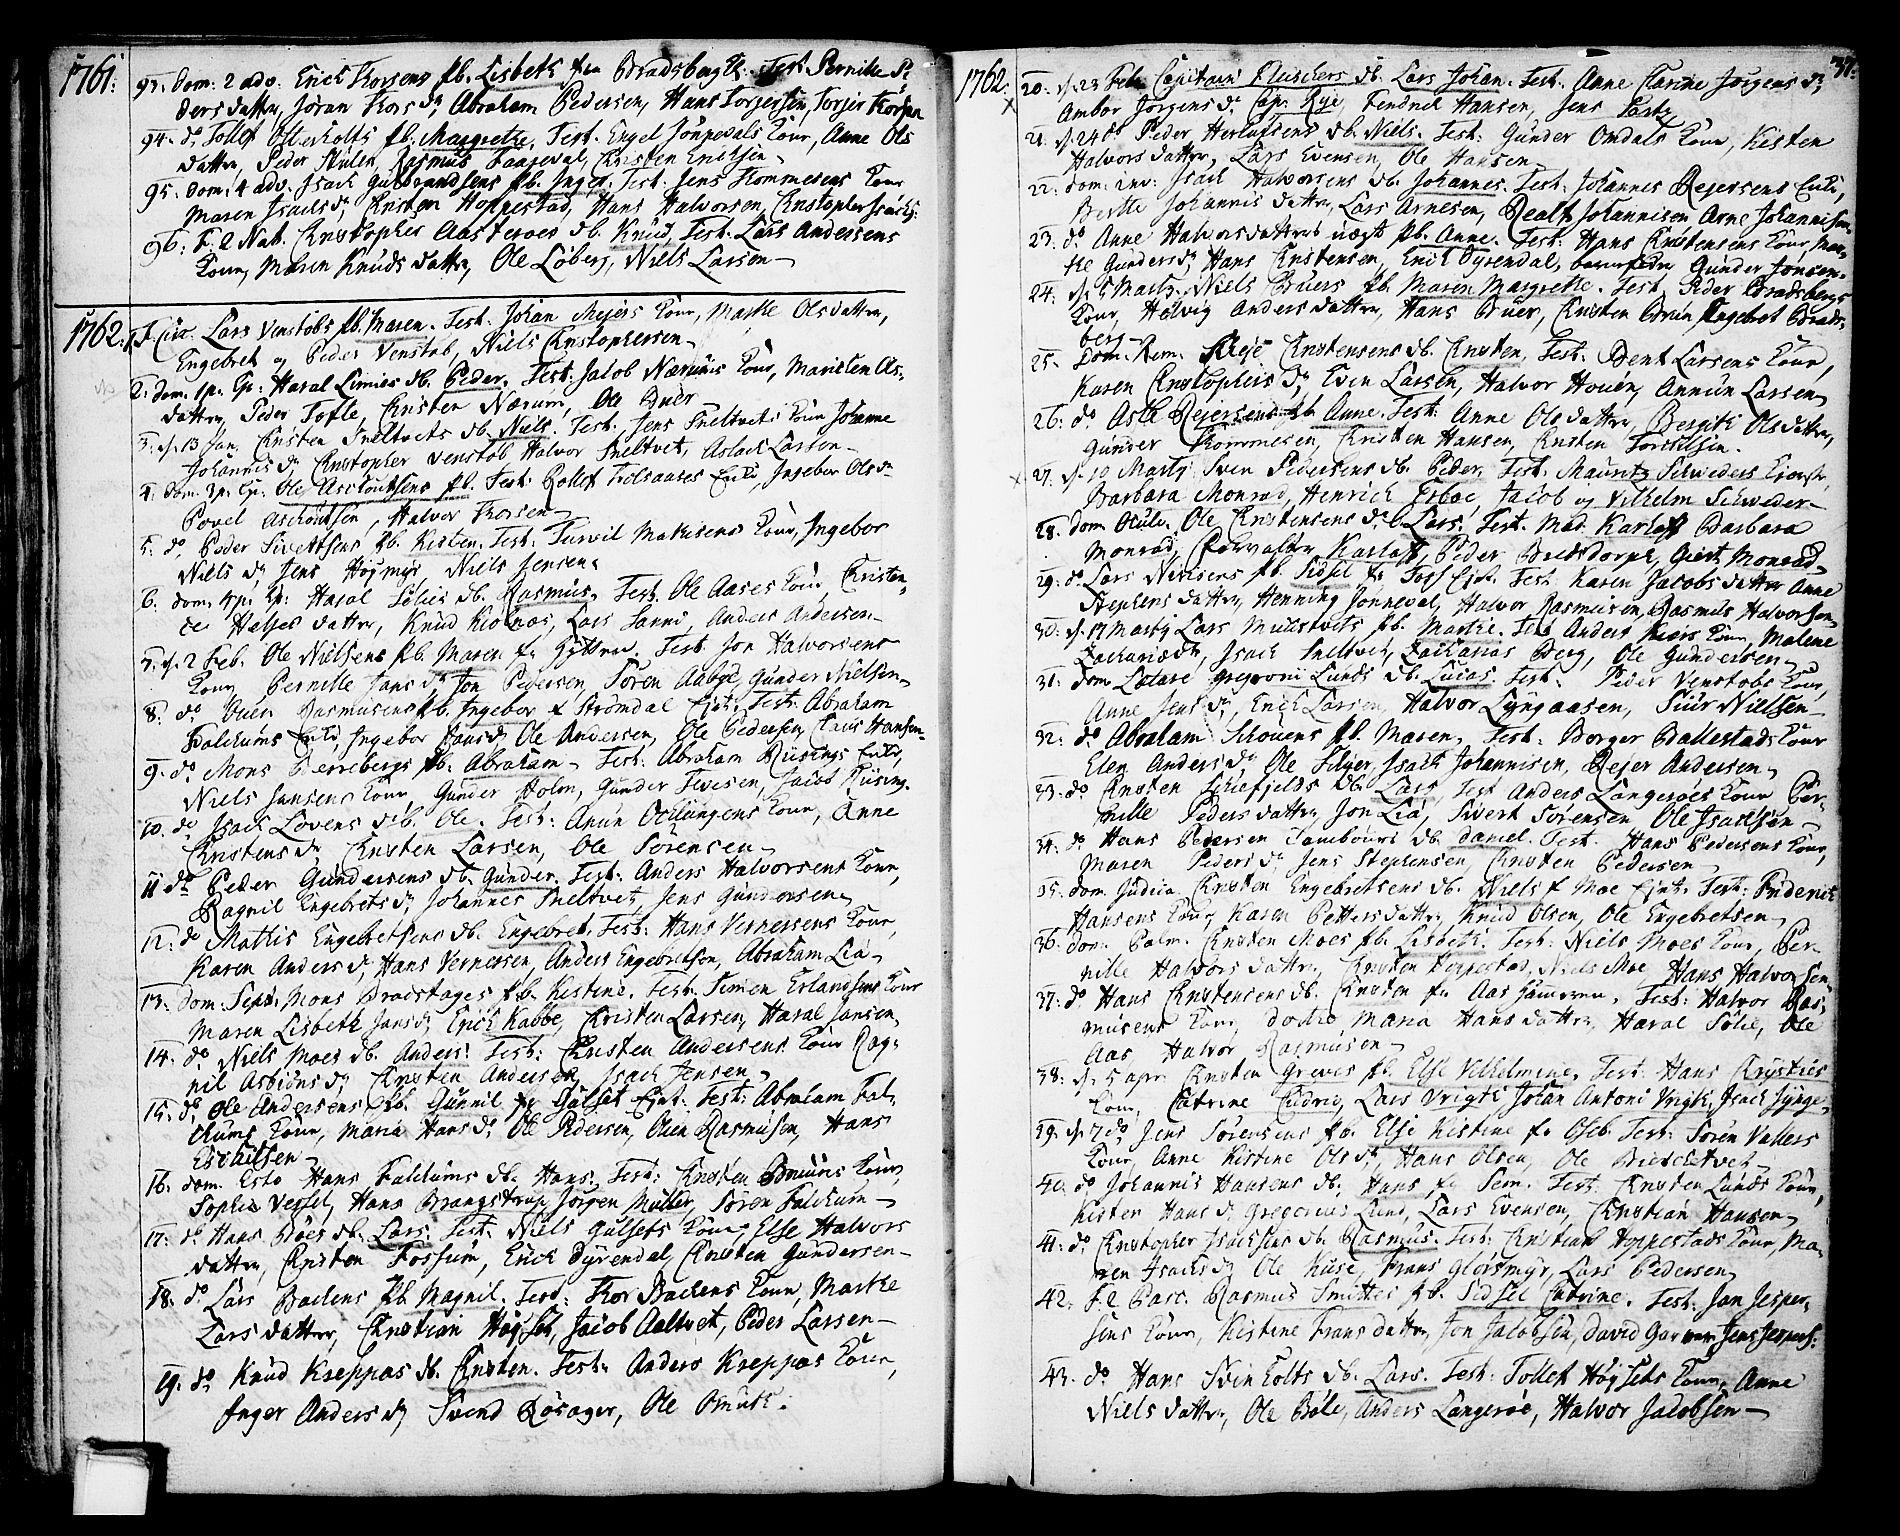 1761:
93. Dom: 2 adv. Erick Thorsens pb. Lisbeth fra Bradsberg Ek. Test. Pernille Pe-
ders datter, Joran Thors dr, Abraham Pedersen, Hans Torjersen, Torjer Thorsen
94. do Tollef Osterholts pb. Margrethe, Test. Engel Jonnevals Kone, Anne Ols
datter, Peder Rasmus Christen Erichsen
95. Dom: 4 adv. Isach Gulbrandsens pb. Inger. Test. Jens Thommesens Kone
Maren Isachs dr, Christen Hoppestad, Hans Halvorsen, Christopher Isachs:
96. F. 2 Nat. Christopher Aasteroes db. Knud, Test. Lars Andersens
Kone, Maren Knuds datter, Ole Løberg, Niels Larsen
1762:
1. F. Circ. Lars Venstobs pb. Maren. Test. Johan Mejers Kone, Marthe Ols datter,
Engebret og Peder Venstob, Niels Christophersen
2. dom. 1 p. Ep: Haral Limies db. Peder. Test: Jacob Nærums Kone, Maristen Ols
datter, Peder Tofle, Christen Nærum, Ole Buer
3. d. 13 Jan. Christen Sneltvets db. Niels. Test. Jens Sneltvets Kone Johanne
Johannis dr Christopher Venstob Halvor Sneltvet, Aslach Larsen
4. dom. 3 p. Ep. Ole Aschoutsens pb. Test: Rollef Trolsaases Enke, Ingebor Ols dr
Povel Aschoutsen, Halvor Thorsen
5. do Peder Sivertsens pb. Kisten. Test: Mathisens Kone, Ingebor
Niels dr Jens Høgmyr, Niels Jensen
6. dom. 4 p. Ep: Haral Solies db. Rasmus. Test. Ole Aases Kone, Christen-
ce Heljes datter, Knud Kiolnæs, Lars Sanni, Anders Andersen
7. d. 2 Feb. Ole Nielsens pb. Maren fr. Test. Jon Halvorsens
Kone Pernille Jans dr Jon Pedersen Søren Aabye Gunder Nielsen
8. do Ouen Rasmusens pb. Ingebor f. Strømdal Ejet. Test: Abraham
Falchums Enke Ingebor Hans dr Ole Andersen, Ole Pedersen, Claus Hansen
9. do Mons Berrebergs pb. Abraham. Test: Abraham Riisings Enke,
Niels Jansens Kone, Gunder Holm, Gunder Ivesen, Jacob Riising
10. do Isach Lovens db. Ole. Test: Anun Ocklungens Kone, Anne
Christens dr Christen Larsen, Ole Sørensen
11 do Peder Gundersens db. Gunder. Test: Anders Halvorsens Kone,
Ragnil Engebrets dr Johannes Sneltvet, Jens Gundersen
12. do Mathis Engebretsens db. Engebret. Test: Hans Vernersens Kone
Karen Anders dr, Hans Vernersen, Anders Engebretsen, Abraham Lia
13. dom. Sept: Mons Bradstages pb. Kistine. Test. Simen Erlandsens Kone
Maren Lisbeth Jans dr Erick Kabbe, Christen Larsen, Haral Jansen
14. do Niels Moes db. Anders. Test: Christen Andersens Kone Rag-
nil Asbiøns dr Christen Andersen, Isach Jensen
15. do Ole Andersens pb. Gunnil fr Gulset Ejet. Test: Abraham Fal-
chums Kone, Maria Hans dr Ole Pedersen, Ouen Rasmusen, Hans
Eschilsen
16. dom. Esto Hans Falchums db. Hans. Test: Christen Bruuns Kone,
Sophie Vessel, Hans Brangstrup, Jørgen Müller, Søren Falchum
17. do Hans Bøes db. Lars. Test. Niels Gulsets Kone, Else Halvors
datter, Christen Fossum, Erick Dyrendal, Christen Gundersen
18. do Lars Bachens pb. Magnil. Test: Thor Bachens Kone, Marthe
Lars datter, Christian Høyset, Jacob Aaltvet, Peder Larsen
19. do Knud Kreppas db. Christen. Test. Anders Kreppas Kone,
Inger Anders dr Svend Røsager, Ole Omuth.
1762.
37.
20. d. 23 Feb. Capitain Fluschers db. Lars Johan. Test. Anne Carine Jørgens dr
Ambor Jørgens dr Cap. Rye, Fendrich Hansen, Jens
21. d. 24 do Peder Herlufsens db. Niels. Test: Gunder Omdals Kone, Kisten
Halvors datter, Lars Evensen, Ole Hansen
22. dom. inv: Isach Halvorsens db. Johannes. Test: Johannes Rejersens Enke,
Berthe Johannis datter, Lars Arnesen, Realf Johannisen Arne Johannisen
23. do Anne Halvorsdatters uægt pb. Anne. Test: Hans Christensens Kone, Mar-
the Gunders dr Hans Christensen, Erick Dyrendal, barnefader Gunder Jonsen
24. d. 5 Marty. Niels Buers pb. Maren Margrethe. Test. Peder Bradsbergs
Kone, Helvig Anders datter, Hans Buer, Christen Bruun Engebret Brads-
berg
25. Dom. Rem. Reje Christensens db. Christen, Test. Bent Larsens Kone,
Karen Christophers dr Even Larsen, Halvor Houen, Annun Larsen
26. do Asle Rejersens pb. Anne. Test: Anne Ols datter, Bergith Ols datter,
Gunder Thommesen, Christen Hansen, Christen Torkilsen
27. d. 10 Marty Sven Pedersens db. Peder, Test: Mauritz Schweders
Barbara Monrad, Henrich Esboe, Jacob og Vilhelm Schweder
28. dom. Oculi. Ole Christensens db. Lars. Test. Mad. Karhoff Barbara
Monrad, Karhoff, Peder Bredsdorph, Giert Monrad
29. do Lars Nerisens pb. Sidsel fr. Foss Ejet. Test: Karen Jacobs datter Anne
Stephens datter, Henning Jonneval, Halvor Rasmusen, Rasmus Halvorsen
30. d. 17 Marty Lars Mulstvets pb. Marthe. Test Anders Moes Kone, Malene
Zachariæ dr, Isach Sneltvet, Zacharias Berg, Ole Gundersen
31. dom. Lætare Gregorii Lunds db. Lucas. Test: Peder Venstobs Kone
Anne Jens dr, Erick Larsen, Halvor Lyngaasen, Siur Nielsen
32. do Abraham Schouens pb. Maren, Test: Borger Ballestads Kone
Elen Anders dr Ole Tilyer, Isach Johannisen, Rejer Andersen
33. do Christen Schiefjelds db. Lars, Test Anders Langerøes Kone Per-
nille Peders datter, Jon Lia, Sivert Sørensen Ole Isachsen
34. do Hans Pedersen Tambours db. Daniel. Test. Hans Pedersens Kone,
Maren Peders dr Jens Stephensen, Christen Pedersen
35. dom. Judica Christen Engebretsens db. Niels f. Moe Ejet. Test: Friderich
Hansens Kone Karen Petters datter, Knud Olsen, Ole Engebretsen
36. dom. Palm. Christen Moes pb. Lisbeth. Test: Niels Moes Kone, Per-
nille Halvors datter, Christen Hoppestad, Niels Moe Hans Halvorsen
37. do Hans Christensens db. Christen fr. Aas Hammeren. Test: Halvor Ras-
musens Kone, Dothe Maria Hans datter, Haral Solie, Ole
Aas Halvor Rasmusen
38. d. 5 apr. Christen Greves pb. Else Vilhelmine. Test: Hans Crysties
Kone, Catrine Lars Vrigth Johan Antoni Vrigth, Isach Jynge
39. d. 7 do Jens Sørensens pb. Else Kistine fr. Oseb. Test: Søren Vallers
Kone, Anne Kistine Ols dr, Hans Olsen, Ole Bredeltvet
40. do Johannis Hansens db. Hans fr. Sem. Test. Christen Lunds Kone,
Kisten Hans dr Gregorius Lund, Lars Evensen, Christian Hansen
41. do Christopher Isachsens db. Rasmus. Test: Christian Hoppestads Kone, Ma-
ren Isachs dr Ole Huse, Frans Glosmyr, Lars Pedersen
42. F. 2 Pasc. Rasmus Smitters pb. Sidsel Catrine. Test: Jan Jesper-
sens Kone, Kistine Frans datter, Jon Jacobsen, David Garman Jens Jespers:
43. do Hans Svinholts db. Lars. Test: Tollef Høysets Kone, Anne
Niels datter, Ole Bøle, Anders Langerøe, Halvor Jacobsen